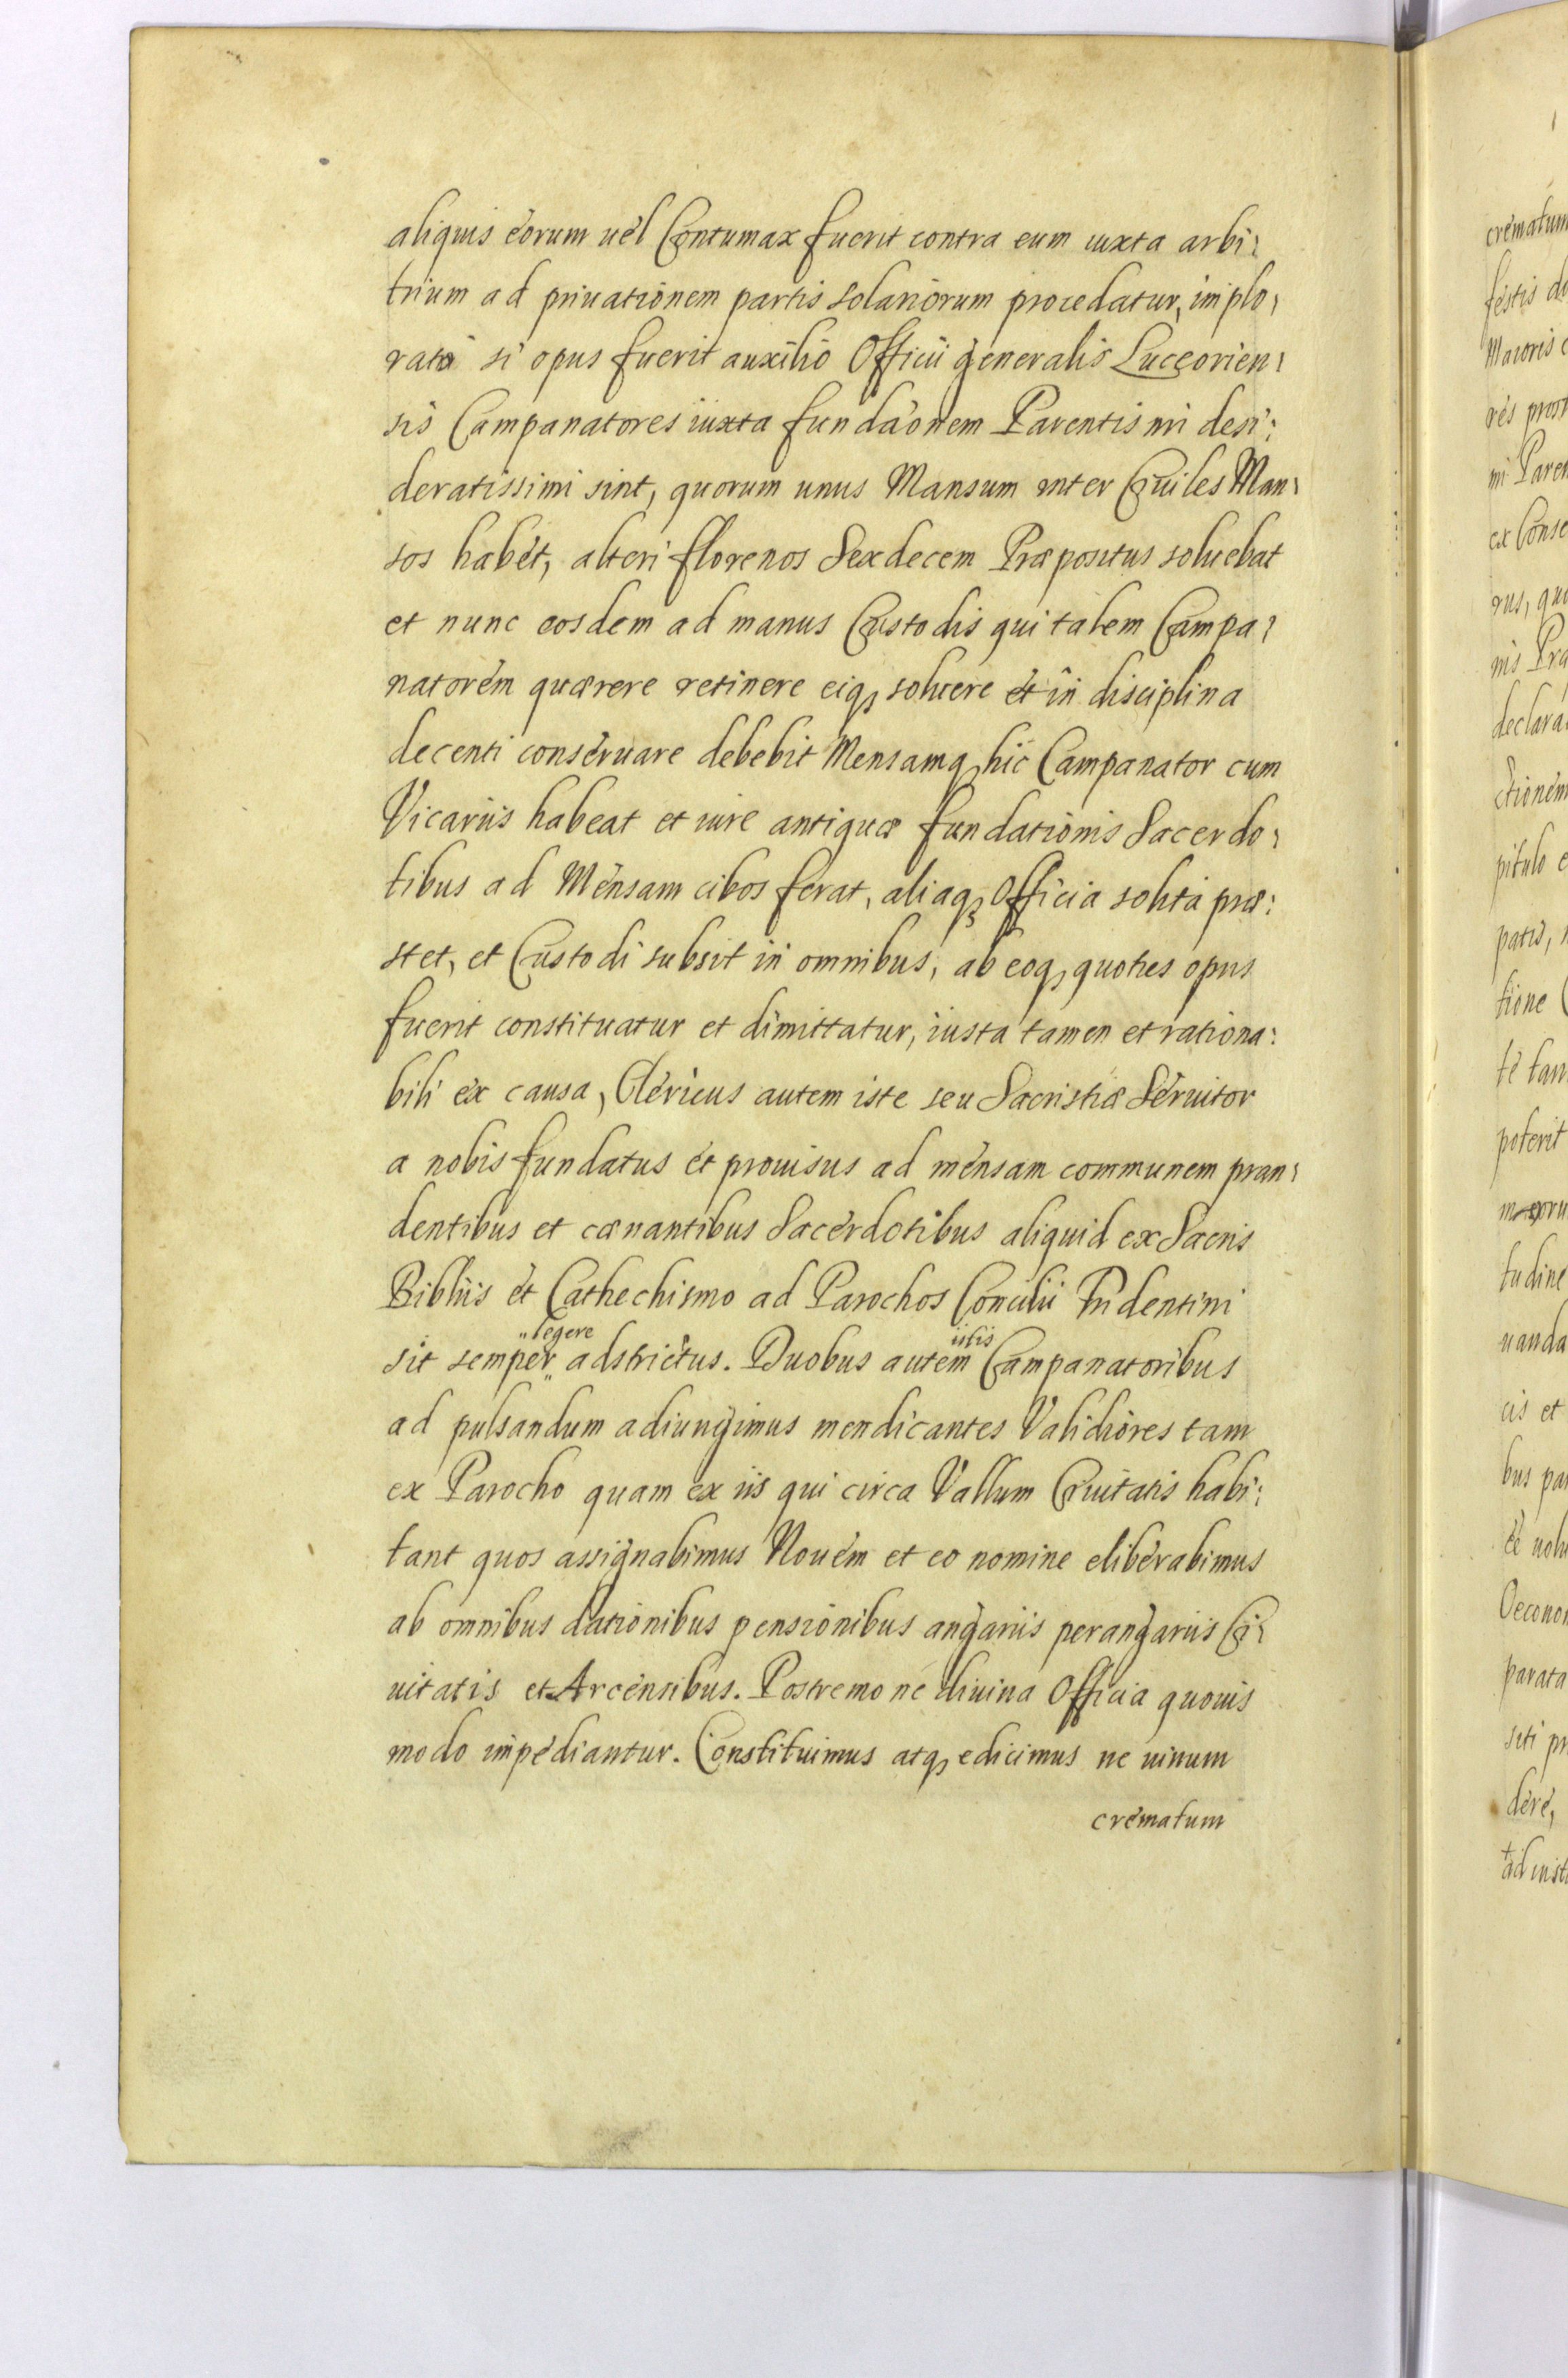 aliquis eorum uel Contumax fuerit contra eum iuxta arbi:
trium ad priuationem partis solariorum procedatur, implo,
rato si opus fuerit auxilio Officii generalis Luceorien,
sis Campanatores iuxta fundaonem Parentis mi desi:
deratissimi sint, quorum unus Mansum inter Ciuiles Man,
sos habet, alteri florenos Sexdecem Præpositus soluebat
et nunc eosdem ad manus Custodis qui talem Campa,
natorem quærere retinere eiq, soluere et in disciplina
decenti conseruare debebit Mensamq, hic Campanator cum
Vicariis habeat et iure antiquæ fundationis Sacerdo,
tibus ad Mensam cibos ferat, aliaq, Officia solita præ:
stet, et Custodi subsit in omnibus, ab eoq, quoties opus
fuerit constituatur et dimittatur, iusta tamen et rationa:
bili ex causa, Clericus autem iste seu Sacristiæ Seruitor
a nobis fundatus et prouisus ad mensam communem pran,
dentibus et cænantibus Sacerdotibus aliquid ex Sacris
Bibliis et Cathechismo ad Parochos Concilii Tridentini
sit semper „legere adstrictus. Duobus autem iitis Campanatoribus
ad pulsandum adiungimus mendicantes Validiores tam
ex Parocho quam ex iis qui circa Vallum Ciuitatis habi:
tant quos assignabimus Nouem et eo nomine eliberabimus
ab omnibus dationibus pensionibus angariis perangariis Ci,
uitatis et Arcensibus. Postremo ne diuina Officia quouis
modo impediantur. Constituimus atq, edicimus ne uinum
crematum
crematum
festis
Maioris
res
mi
ex
rus,
nis
pitulo
patis,
tione
te
poterit
tudine
nanda
cis et
bus
parata
siti
dere,